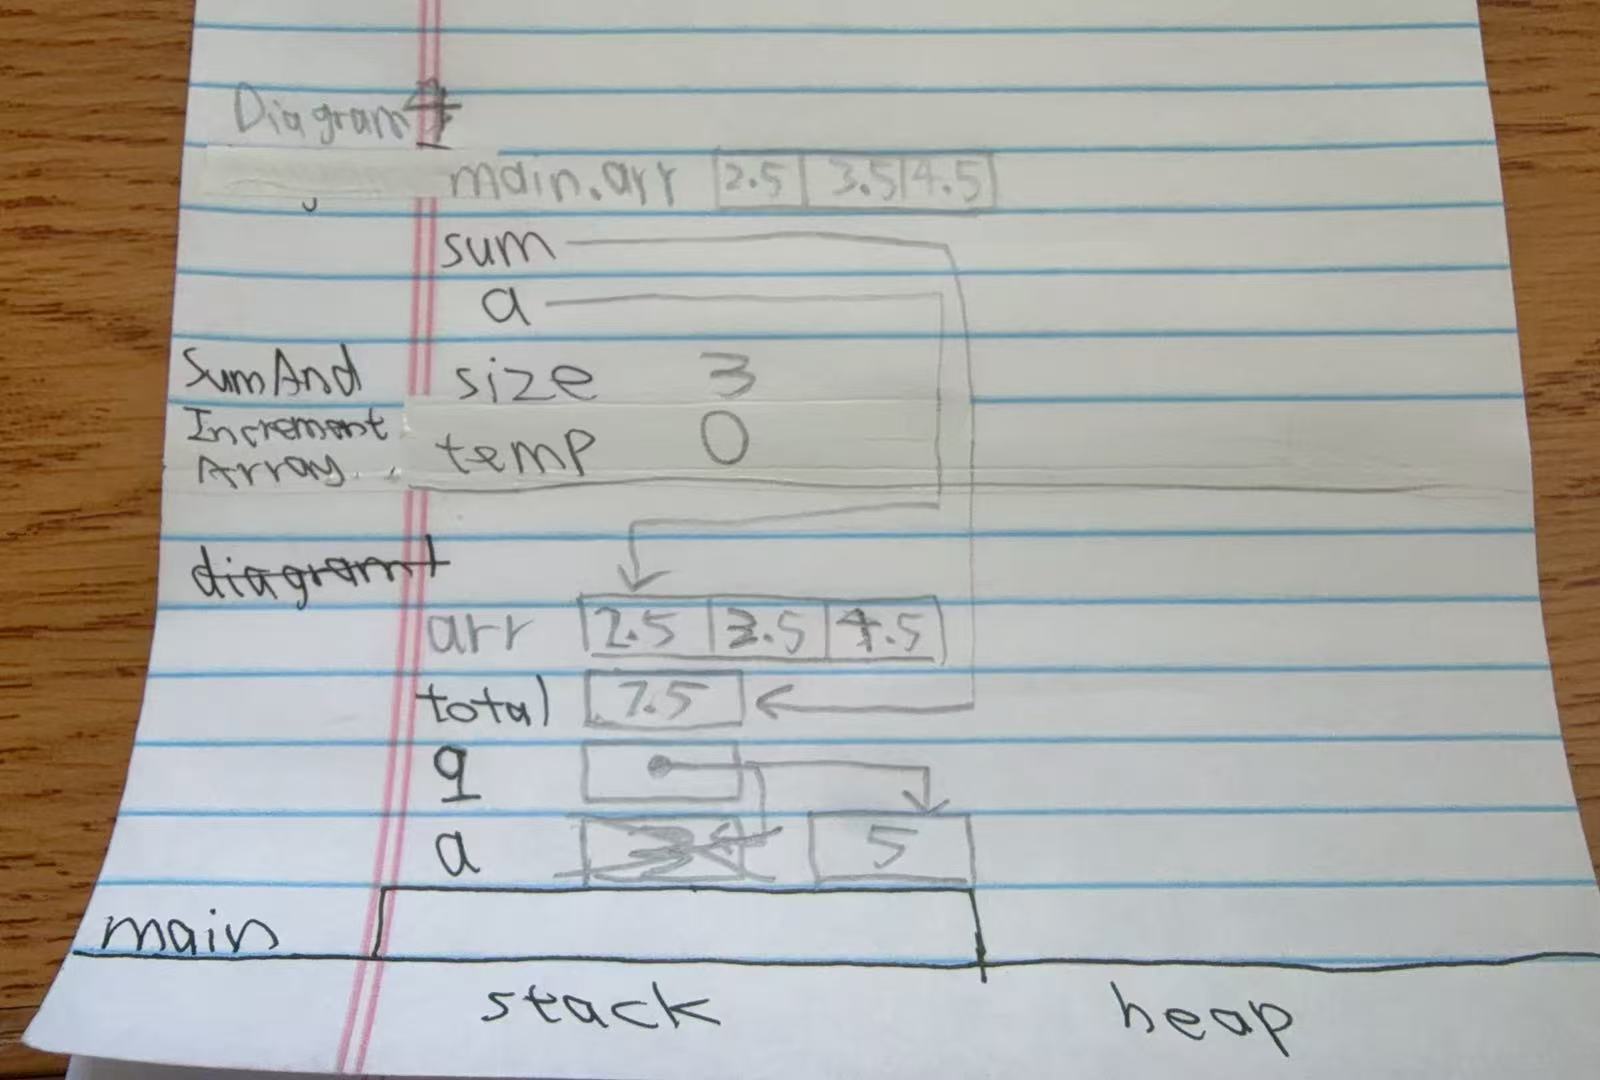 Diagram
main.arr 2.5 3.5 4.5
sum
a
SumAnd size 3
Increment
Array. temp 0
diagram1
arr 2.5 3.5 4.5
total 7.5
q
a 5
main
stack heap